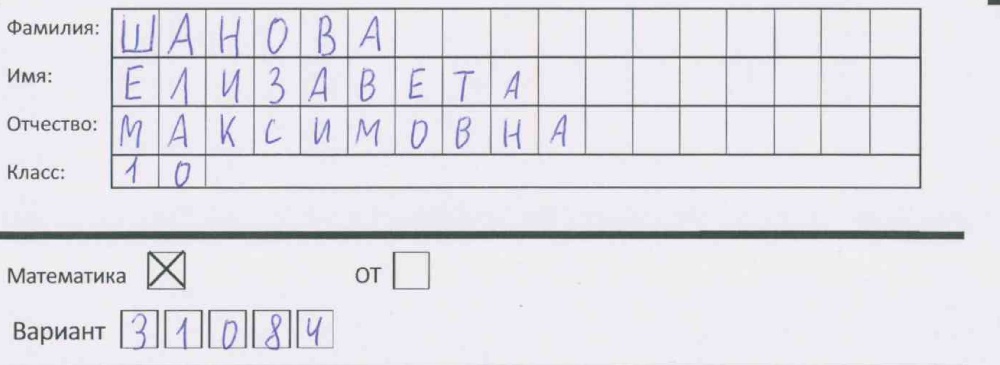 Фамилия: ШАНОВА
Имя: ЕЛИЗАВЕТА
Отчество: МАКСИМОВНА
Класс: 10
Математика ОТ
Вариант 31084